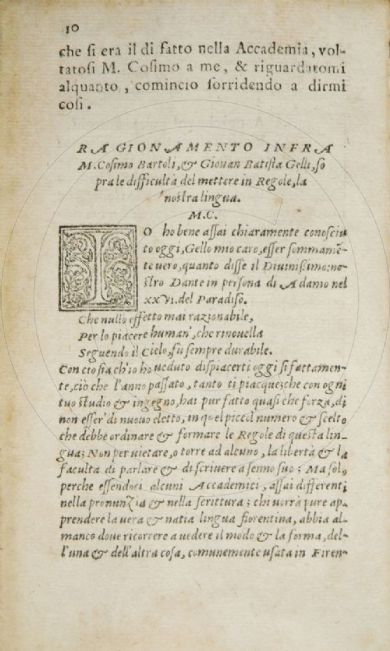 10
che si era il di fatto nella Accademia, vol-
tatosi M. Cosimo a me, & riguardatomi
alquanto, comincio sorridendo a dirmi
cosi.
RAGIONAMENTO INFRA
M. Cosimo Bartoli, & Giovan Batista Gelli, so
pra le difficultà del mettere in Regole, la
nostra lingua.
M.C.
IO ho bene assai chiaramente conosciu
to oggi, Gello mio caro, esser sommamē
te vero, quanto disse il Diuinissimo no-
stro Dante in persona di Adamo nel
XXVI. del Paradiso.
Che nullo effetto mai razionabile,
Per lo piacere human', che rinovella
Seguendo il Cielo, fu sempre durabile.
Con cio sia ch'io ho ueduto dispiacerti oggi si fattamen-
te, ciò che l'anno passato, tanto ti piacque; che con ogni
tuo studio & ingegno, hai pur fatto quasi che forza, di
non esser' di nuovo eletto, in quel piccol numero & scelto
che debbe ordinare & formare le Regole di questa lin-
gua; Non per vietare, o torre ad alcuno, la libertà & la
faculta di parlare & di scrivere a senno suo; Ma solo
perche essendoci alcuni Accademici, assai differenti
nella pronunzia & nella scrittura; chi vorrà pure ap-
prendere la vera & natia lingua fiorentina, abbia al-
manco dove ricorrere a vedere il modo & la forma, del-
l'una & dell'altra cosa, comunemente usata in Firen-